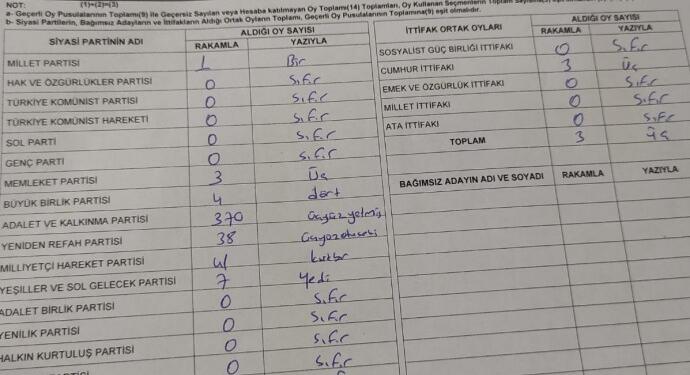 NOT: (1)=(2)=(3)
a- Geçerli Oy Pusulalarının Toplamı(9) ile Geçersiz Sayılan veya Hesaba katılmayan Oy Toplamı(14) Toplamları, Oy Kullanan Seçmenlerin Toplam
b- Siyasi Partilerin, Bağımsız Adayların ve İttifakların Aldığı Ortak Oyların Toplamı, Geçerli Oy Pusulalarının Toplamına(9) eşit olmalıdır.
SİYASİ PARTİNİN ADI ALDIĞI OY SAYISI
RAKAMLA YAZIYLA
MİLLET PARTİSİ 1 Bir
HAK VE ÖZGÜRLÜKLER PARTİSİ 0 Sıfır
TÜRKİYE KOMÜNİST PARTİSİ 0 Sıfır
TÜRKİYE KOMÜNİST HAREKETİ 0 Sıfır
SOL PARTİ 0 Sıfır
GENÇ PARTİ 0 Sıfır
MEMLEKET PARTİSİ 3 Üç
BÜYÜK BİRLİK PARTİSİ 4 dört
ADALET VE KALKINMA PARTİSİ 370
YENİDEN REFAH PARTİSİ 38
MİLLİYETÇİ HAREKET PARTİSİ
YEŞİLLER VE SOL GELECEK PARTİSİ 7 Yedi
ADALET BİRLİK PARTİSİ 0 Sıfır
YENİLİK PARTİSİ 0 Sıfır
HALKIN KURTULUŞ PARTİSİ 0 Sıfır
PARTİSİ 0 Sıfır
İTTİFAK ORTAK OYLARI ALDIĞI OY SAYISI
RAKAMLA YAZIYLA
SOSYALİST GÜÇ BİRLİĞİ İTTİFAKI 0 Sıfır
CUMHUR İTTİFAKI 3 Üç
EMEK VE ÖZGÜRLÜK İTTİFAKI 0 Sıfır
MİLLET İTTİFAKI 0 Sıfır
ATA İTTİFAKI 0 Sıfır
TOPLAM 3 Üç
BAĞIMSIZ ADAYIN ADI VE SOYADI RAKAMLA YAZIYLA